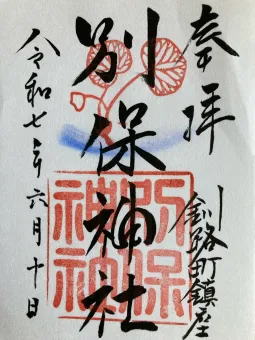 奉拝
釧路町鎮座
別保神社
別保神社
令和七年六月十日